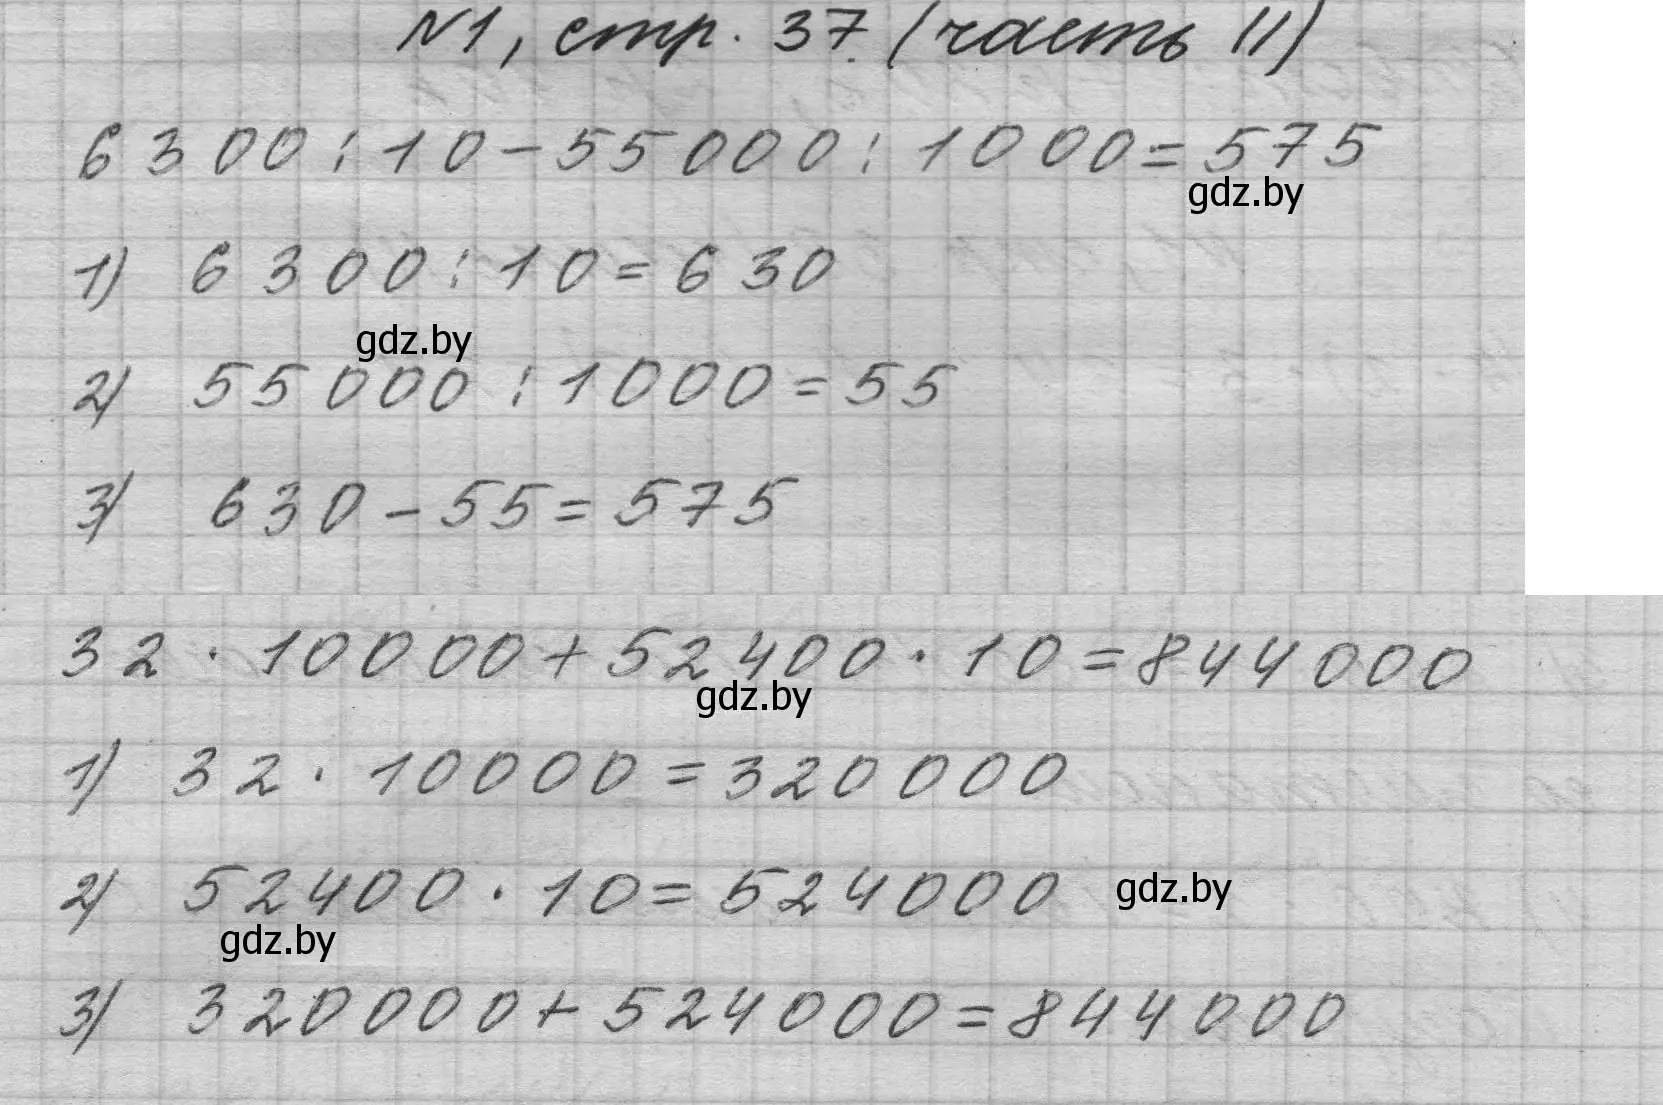 №1, стр. 37 (часть II)
6300 : 10 - 55000 : 1000 = 575
gdz.by
1) 6300 : 10 = 630
gdz.by
2) 55000 : 1000 = 55
3) 630 - 55 = 575
32 · 10000 + 52400 · 10 = 844000
gdz.by
1) 32 · 10000 = 320000
2) 52400 · 10 = 524000
gdz.by
gdz.by
3) 320000 + 524000 = 844000